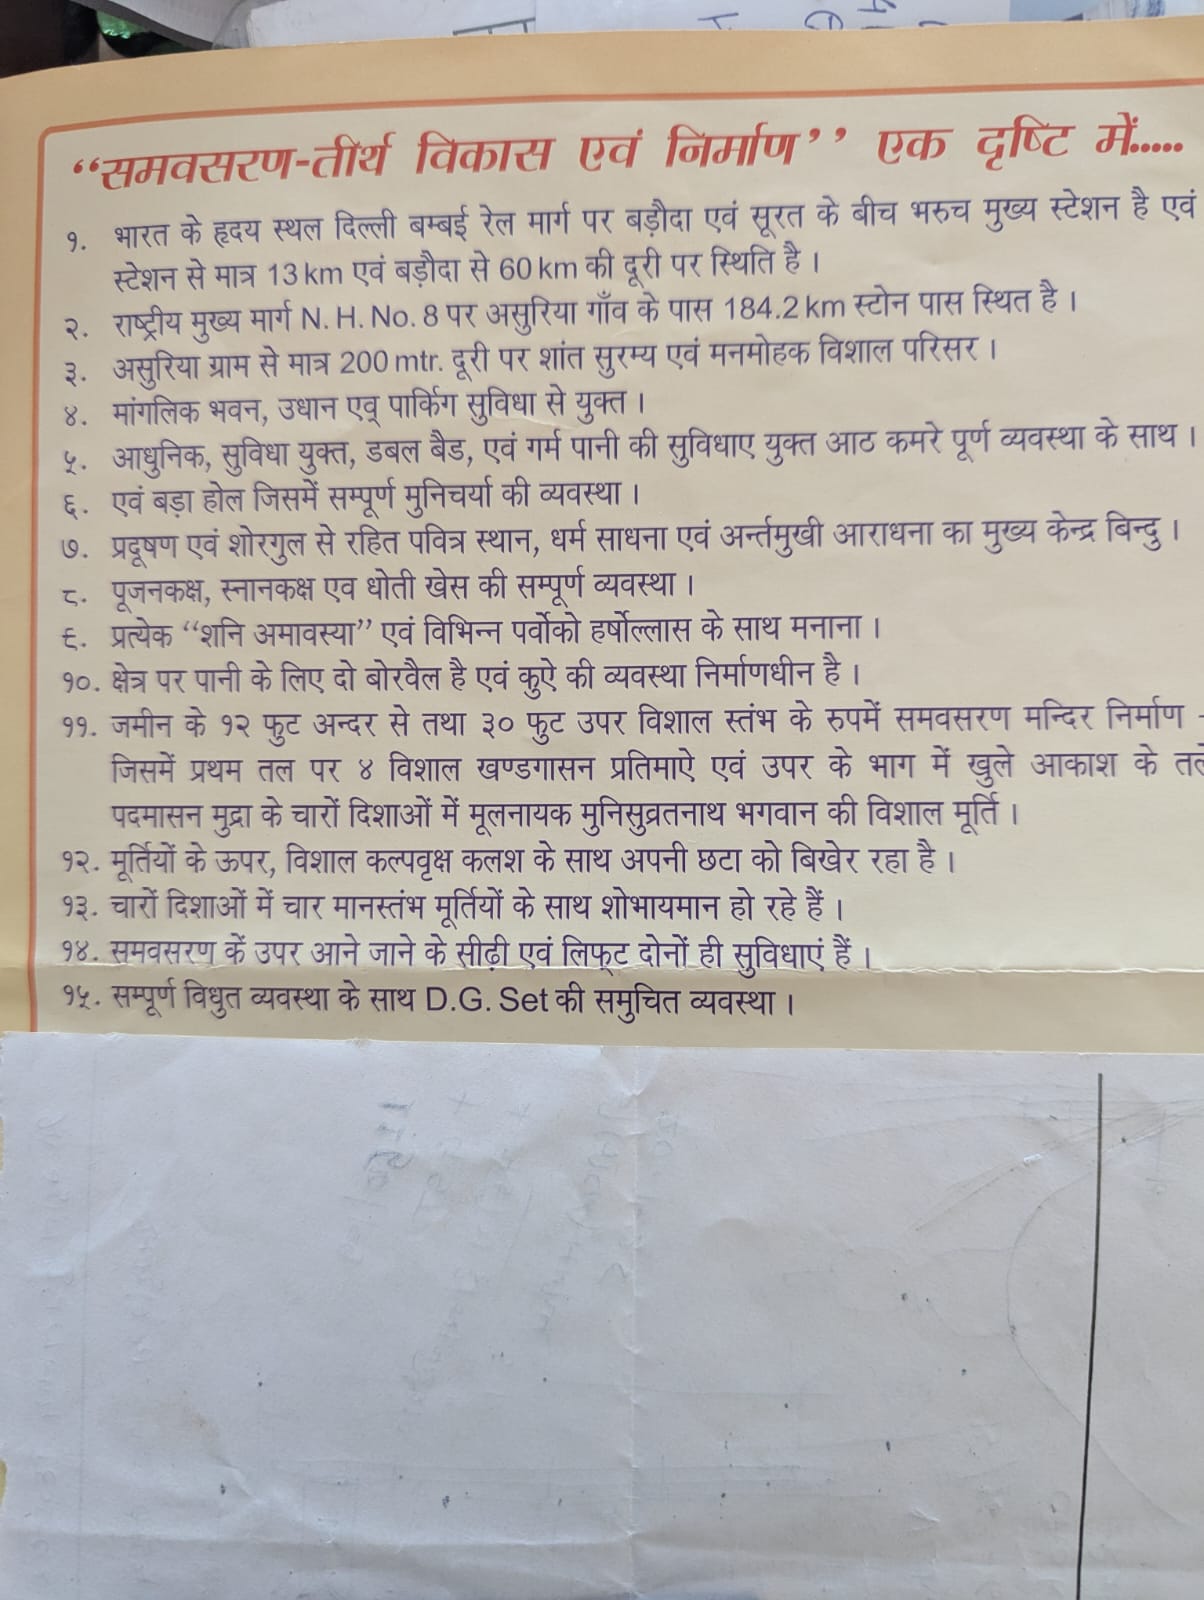 “समवसरण-तीर्थ विकास एवं निर्माण’’ एक दृष्टि में.....
१. भारत के हृदय स्थल दिल्ली बम्बई रेल मार्ग पर बड़ौदा एवं सूरत के बीच भरुच मुख्य स्टेशन है एवं
स्टेशन से मात्र 13 km एवं बड़ौदा से 60 km की दूरी पर स्थिति है ।
२. राष्ट्रीय मुख्य मार्ग N. H. No. 8 पर असुरिया गाँव के पास 184.2 km स्टोन पास स्थित है ।
३. असुरिया ग्राम से मात्र 200 mtr. दूरी पर शांत सुरम्य एवं मनमोहक विशाल परिसर ।
४. मांगलिक भवन, उधान एव् पार्किग सुविधा से युक्त ।
५. आधुनिक, सुविधा युक्त, डबल बैड, एवं गर्म पानी की सुविधाए युक्त आठ कमरे पूर्ण व्यवस्था के साथ ।
६. एवं बड़ा होल जिसमें सम्पूर्ण मुनिचर्या की व्यवस्था ।
७. प्रदूषण एवं शोरगुल से रहित पवित्र स्थान, धर्म साधना एवं अर्न्तमुखी आराधना का मुख्य केन्द्र बिन्दु ।
८. पूजनकक्ष, स्नानकक्ष एव धोती खेस की सम्पूर्ण व्यवस्था ।
९. प्रत्येक “शनि अमावस्या” एवं विभिन्न पर्वोको हर्षोल्लास के साथ मनाना ।
१०. क्षेत्र पर पानी के लिए दो बोरवैल है एवं कुऐ की व्यवस्था निर्माणधीन है ।
११. जमीन के १२ फुट अन्दर से तथा ३० फुट उपर विशाल स्तंभ के रुपमें समवसरण मन्दिर निर्माण -
जिसमें प्रथम तल पर ४ विशाल खण्डगासन प्रतिमाऐ एवं उपर के भाग में खुले आकाश के तले
पदमासन मुद्रा के चारों दिशाओं में मूलनायक मुनिसुव्रतनाथ भगवान की विशाल मूर्ति ।
१२. मूर्तियों के ऊपर, विशाल कल्पवृक्ष कलश के साथ अपनी छटा को बिखेर रहा है ।
१३. चारों दिशाओं में चार मानस्तंभ मूर्तियों के साथ शोभायमान हो रहे हैं ।
१४. समवसरण कें उपर आने जाने के सीढ़ी एवं लिफ्ट दोनों ही सुविधाएं हैं ।
१५. सम्पूर्ण विधुत व्यवस्था के साथ D.G. Set की समुचित व्यवस्था ।